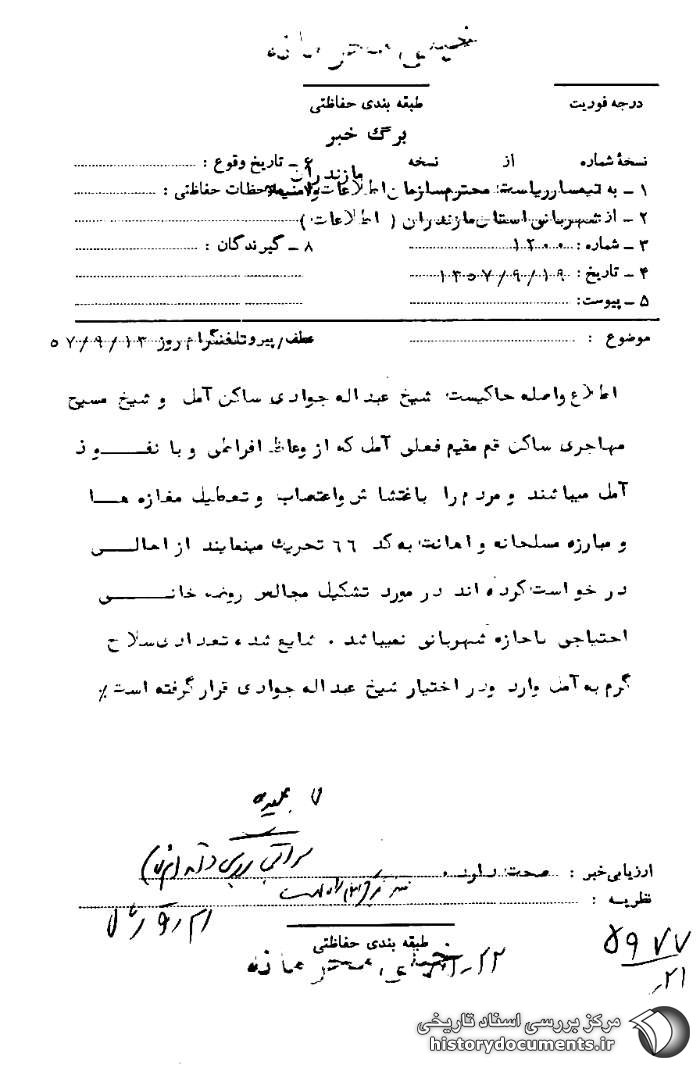 خیلی محرمانه
درجه فوریت
طبقه بندی حفاظتی
برگ خبر
نسخهٔ شماره از نسخه
۶ ــ تاریخ وقوع :
مازندران
۱ ــ به تیمسار ریاست محترم سازمان اطلاعات و امنیت
ملاحظات حفاظتی :
۲ ــ از شهربانی استان مازندران ( اطلاعات )
۳ ــ شماره : ۱۲۰۰
۸ ــ گیرندگان :
۴ ــ تاریخ : ۱۳۵۷/۹/۱۹
۵ ــ پیوست:
موضوع : عطف/پیرو تلفنگرام روز ۵۷/۹/۱۳
اطلاع واصله حاکیست شیخ عبداله جوادی ساکن آمل و شیخ مسیح
مهاجری ساکن قم مقیم فعلی آمل که از وعاظ افراطی و با نفوذ
آمل میباشند و مردم را باغتشاش واعتصاب و تعطیل مغازه ها
و مبارزه مسلحانه و اهانت به کد ۶۶ تحریک مینمایند از اهالی
درخواست کرده اند در مورد تشکیل مجالس روضه خانی
احتیاجی باجازه شهربانی نمیباشد . شایع شده تعدادی سلاح
گرم به آمل وارد ودر اختیار شیخ عبداله جوادی قرار گرفته است٪
ارزیابی خبر : صحت دارد .
نظریه :
طبقه بندی حفاظتی
خیلی محرمانه
۲۲
۵۹۷۷
۲۱
مرکز بررسی اسناد تاریخی
historydocuments.ir